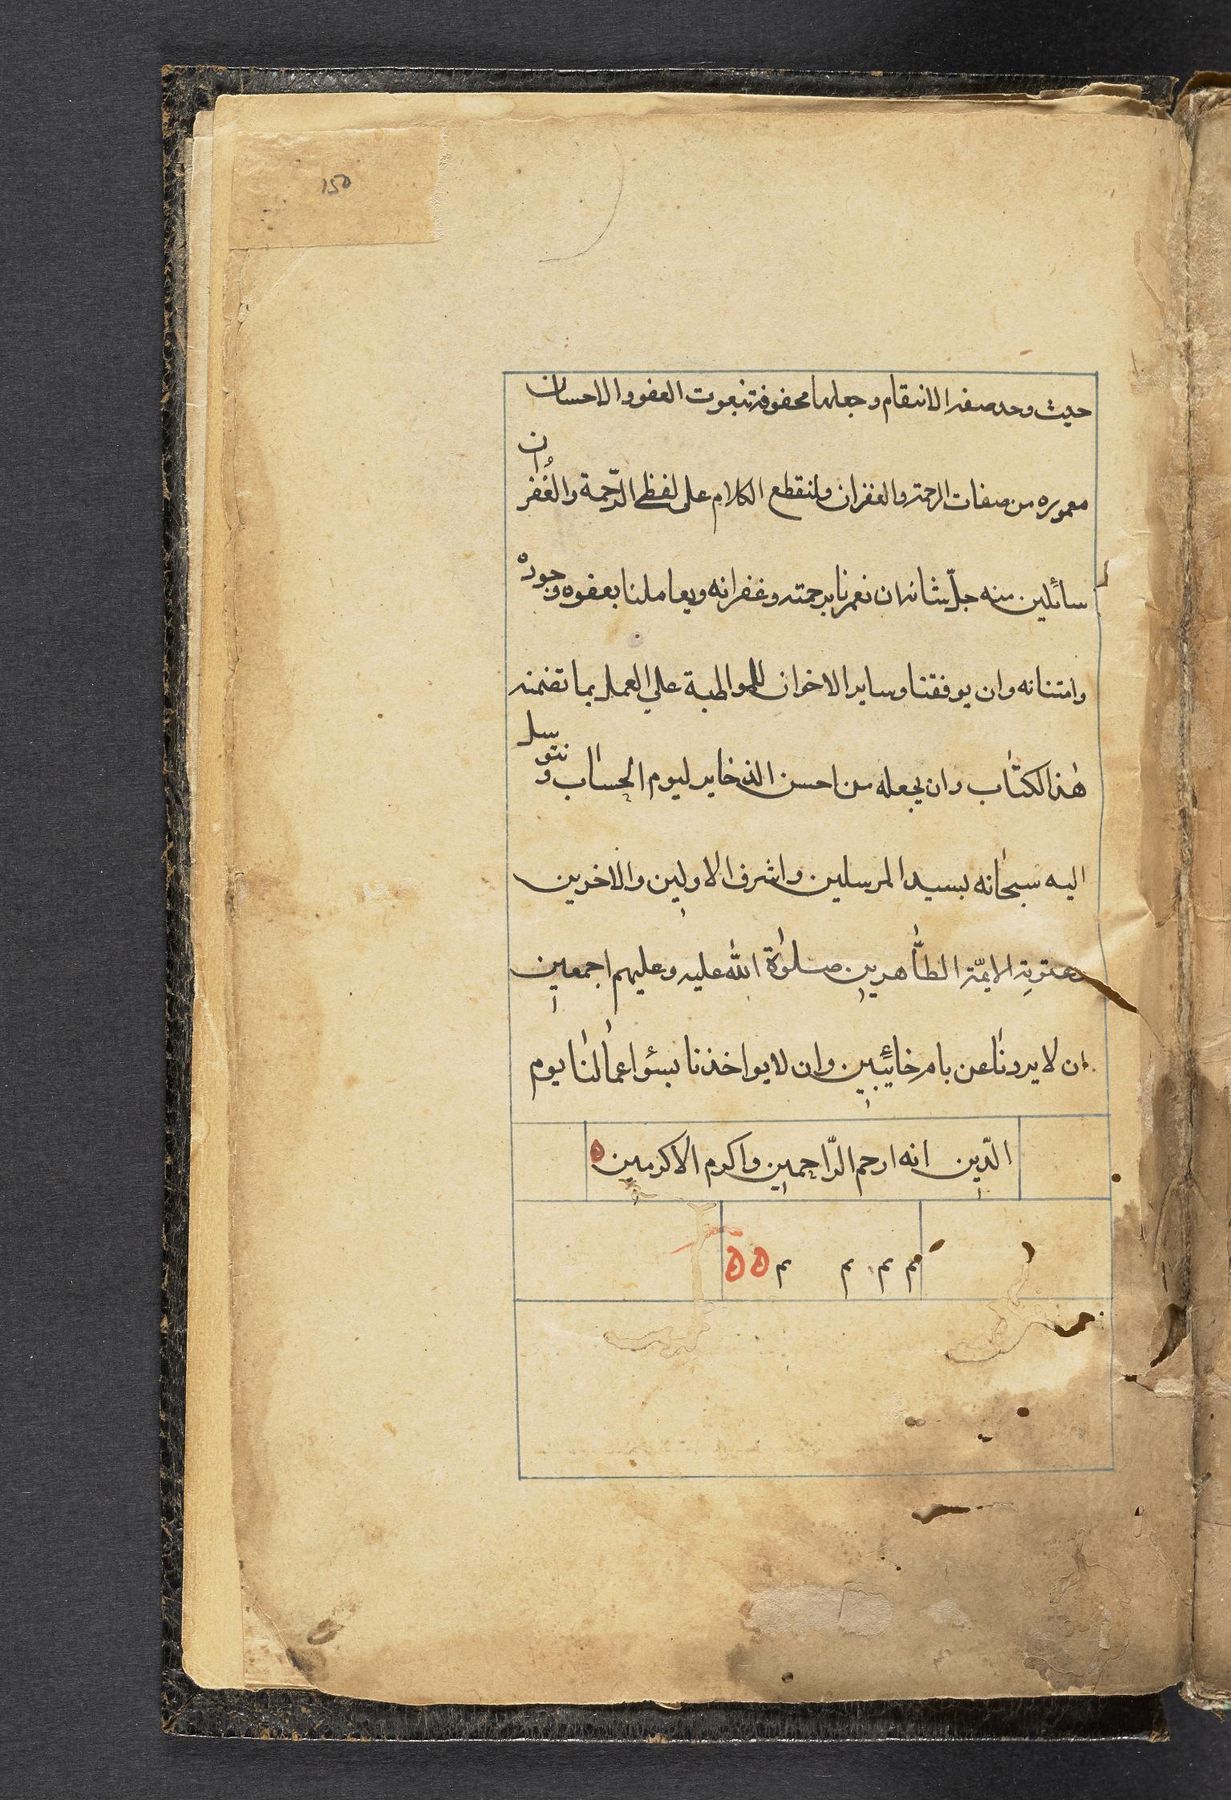 150
حيث وحد صفة الانتقام وجعلها محفوفة بنعوت العفو والاحسان
مغموره من صفات الرحمة والغفران ولنقطع الكلام على لفظي الرّحمة والغُفران
سائلين منه جلّ شانه ان يغمرنا برحمته وغفرانه ويعاملنا بعفوه وجوده
وامتنانه وان يوفقنا وساير الاخوان للمواظبة علي العمل بما تضمنه
هٰذا الكتٰاب وان يجعله من احسن الذخاير ليوم الحسٰاب ونتوسل
اليه سبحٰانه بسيد المرسلين واشرف الاولين والاخرين
وعترته الايمّة الطّٰاهرين صلوٰة الله عليه وعليهم اجمعين
ان لا يردنٰا عن بابه خائبين وان لا يواخذنا بسؤ اعمٰالنٰا يوم
الدّين انه ارحم الرّاحمين واكرم الاكرمين ه
م م م م م ه ه